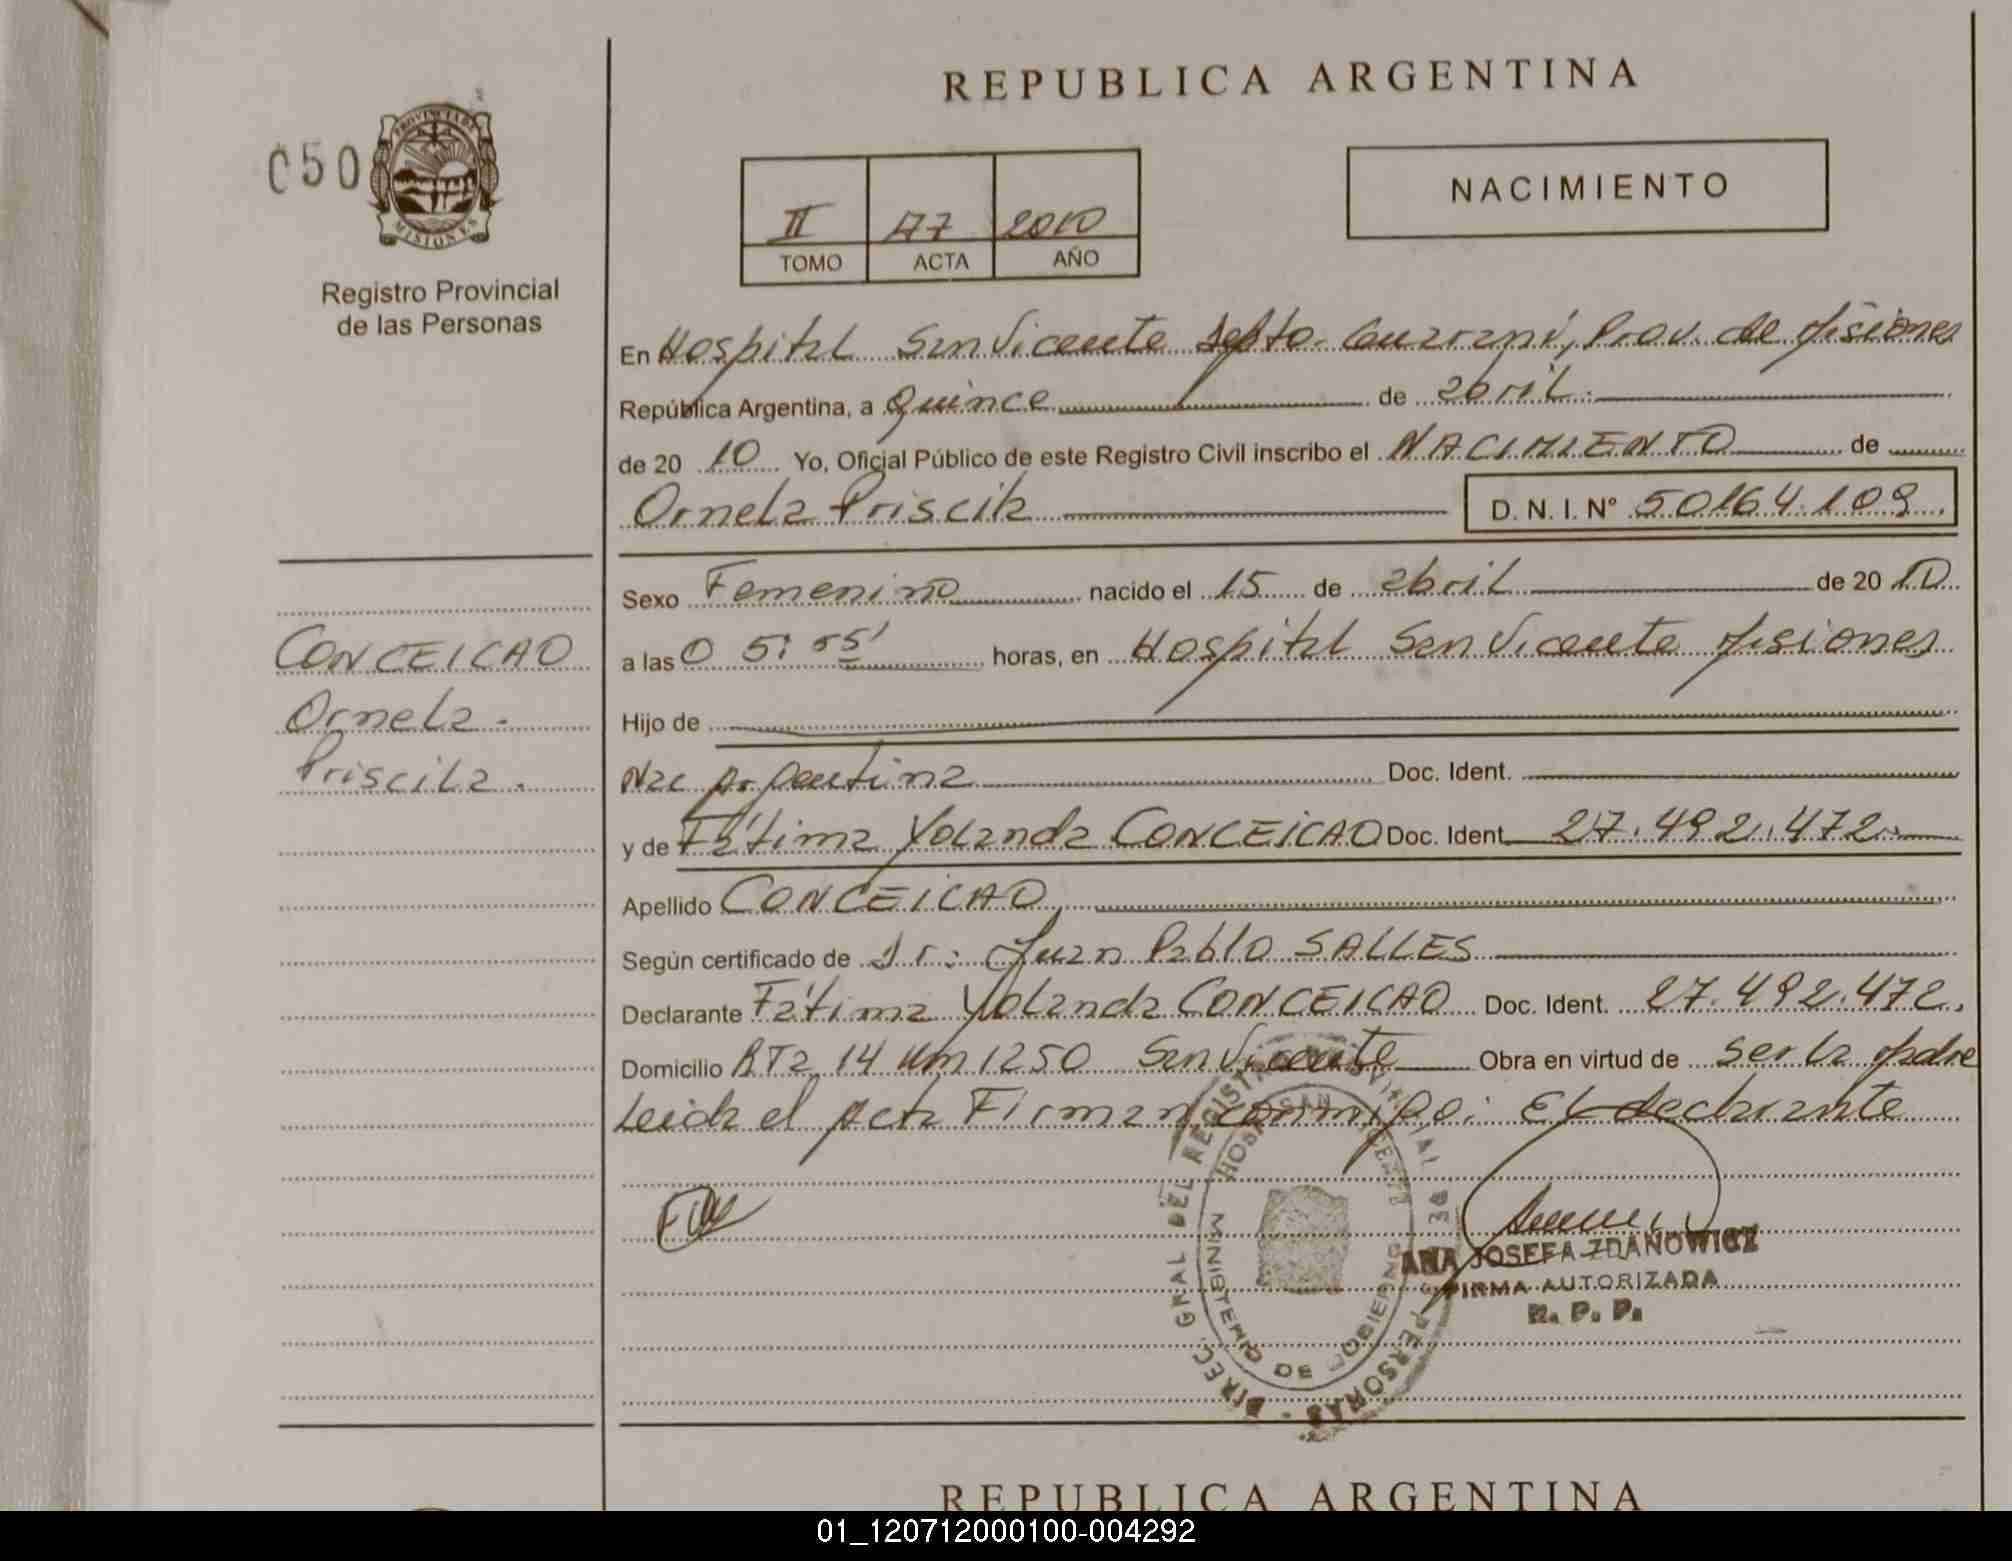 REPUBLICA ARGENTINA
050
PROVINCIA DE
MISIONES
Registro Provincial
de las Personas
II 177 2010
TOMO ACTA AÑO
NACIMIENTO
En Hospital San Vicente Depto. Guaraní, Prov. de Misiones
República Argentina, a Quince de abril.
de 20 10 Yo, Oficial Público de este Registro Civil inscribo el NACIMIENTO de
Ornela Priscila D. N. I. N° 50164.109.
Sexo Femenino nacido el 15 de abril de 20 10
a las 05: 55' horas, en Hospital San Vicente Misiones
Hijo de
Nac Argentina Doc. Ident.
y de Fátima Yolanda CONCEICAO Doc. Ident. 27.492.472.
Apellido CONCEICAO
Según certificado de Dr: Juan Pablo SALLES
Declarante Fátima Yolanda CONCEICAO Doc. Ident. 27.492.472.
Domicilio RTa 14 Km 1250 San Vicente Obra en virtud de ser la Madre
Leida el Acta Firman conmigo: El declarante
CONCEICAO
Ornela.
Priscila.
DIREC. GRAL DEL REGISTRO PROVINCIAL DE PERSONAS
HOSP. SAN VICENTE
MINISTERIO DE GOBIERNO
ANA JOSEFA ZDANOWICZ
FIRMA AUTORIZADA
R. P. P.
REPUBLICA ARGENTINA
01_120712000100-004292